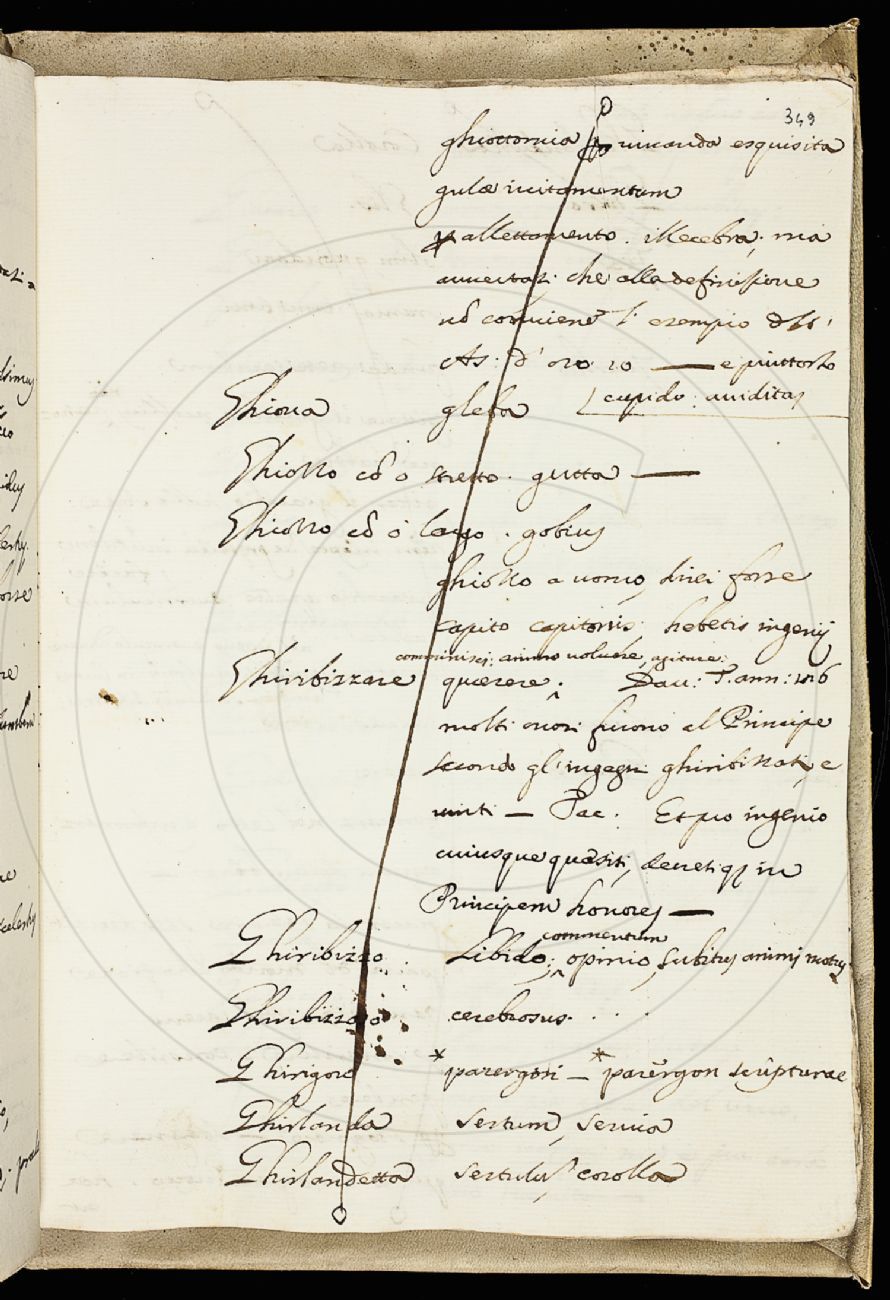 349
ghiottornia vivanda esquisita
gulæ incitamentum
allettamento. illecebra; ma
auuertasi che alla definisione
nō conuiene l' esempio dell'
As: d' oro 10 — e piuttosto
cupido: auiditas
Ghiova gleba
Ghiozzo cō o stretto. gutta —
Ghiozzo cō o largo. gobius
ghiozzo a uomo, direi forse
capito capitonis; hebetis ingenij
comminisci; animo uoluere, agitare:
Ghiribizzare quærere. Dau: T. ann:
molti onori furono al Principe
secondo gl' ingegni ghiribizzati, e
uinti — Tac: Et pro ingenio
cuiusque quæsiti, decretiqȝ in
Principem honores —
commentum
Ghiribizzo Libido; opinio, subitus animi motus
Ghiribizzoso cerebrosus. . . .
Ghirigoro * parergon — * parergon scripturae
Ghirlanda sertum, seruia
Ghirlandetta sertulū, corolla